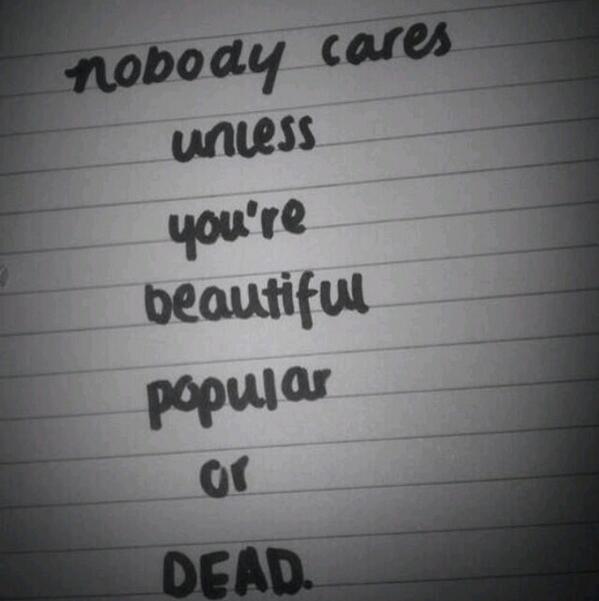 nobody cares
unless
you're
beautiful
popular
or
DEAD.